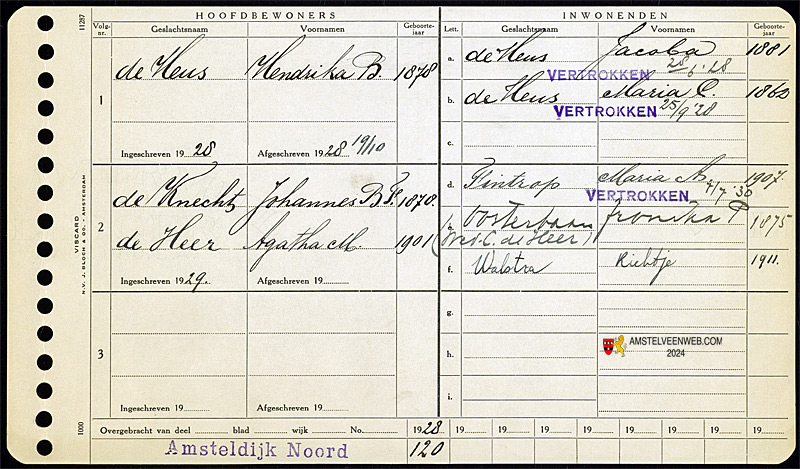 HOOFDBEWONERS
INWONENDEN
Volg-nr. Geslachtsnaam Voornamen Geboorte-jaar
Lett. Geslachtsnaam Voornamen Geboorte-jaar
11287
1 de Heus Hendrika B. 1878
Ingeschreven 1928 Afgeschreven 1928 19/10
a. de Heus Jacoba 1881
VERTROKKEN 28/6 '28
b. de Heus Maria C. 1860
VERTROKKEN 25/9 '28
c.
2 de Knecht Johannes B. 1870
de Heer Agatha M. 1901
Ingeschreven 1929. Afgeschreven 19
d. Tintrop Maria A. 1907
VERTROKKEN 7/7 '30
e. Oosterbaan P 1875
(Wed. C. de Heer)
f. Walstra 1911.
VISCARD
N.V. J. BLOCH & CO. - AMSTERDAM
3
Ingeschreven 19 Afgeschreven 19
g.
h.
i.
AMSTELVEENWEB.COM
2024
1000
Overgebracht van deel blad wijk No. 1928 19 19 19 19 19 19 19 19
Amsteldijk Noord 120